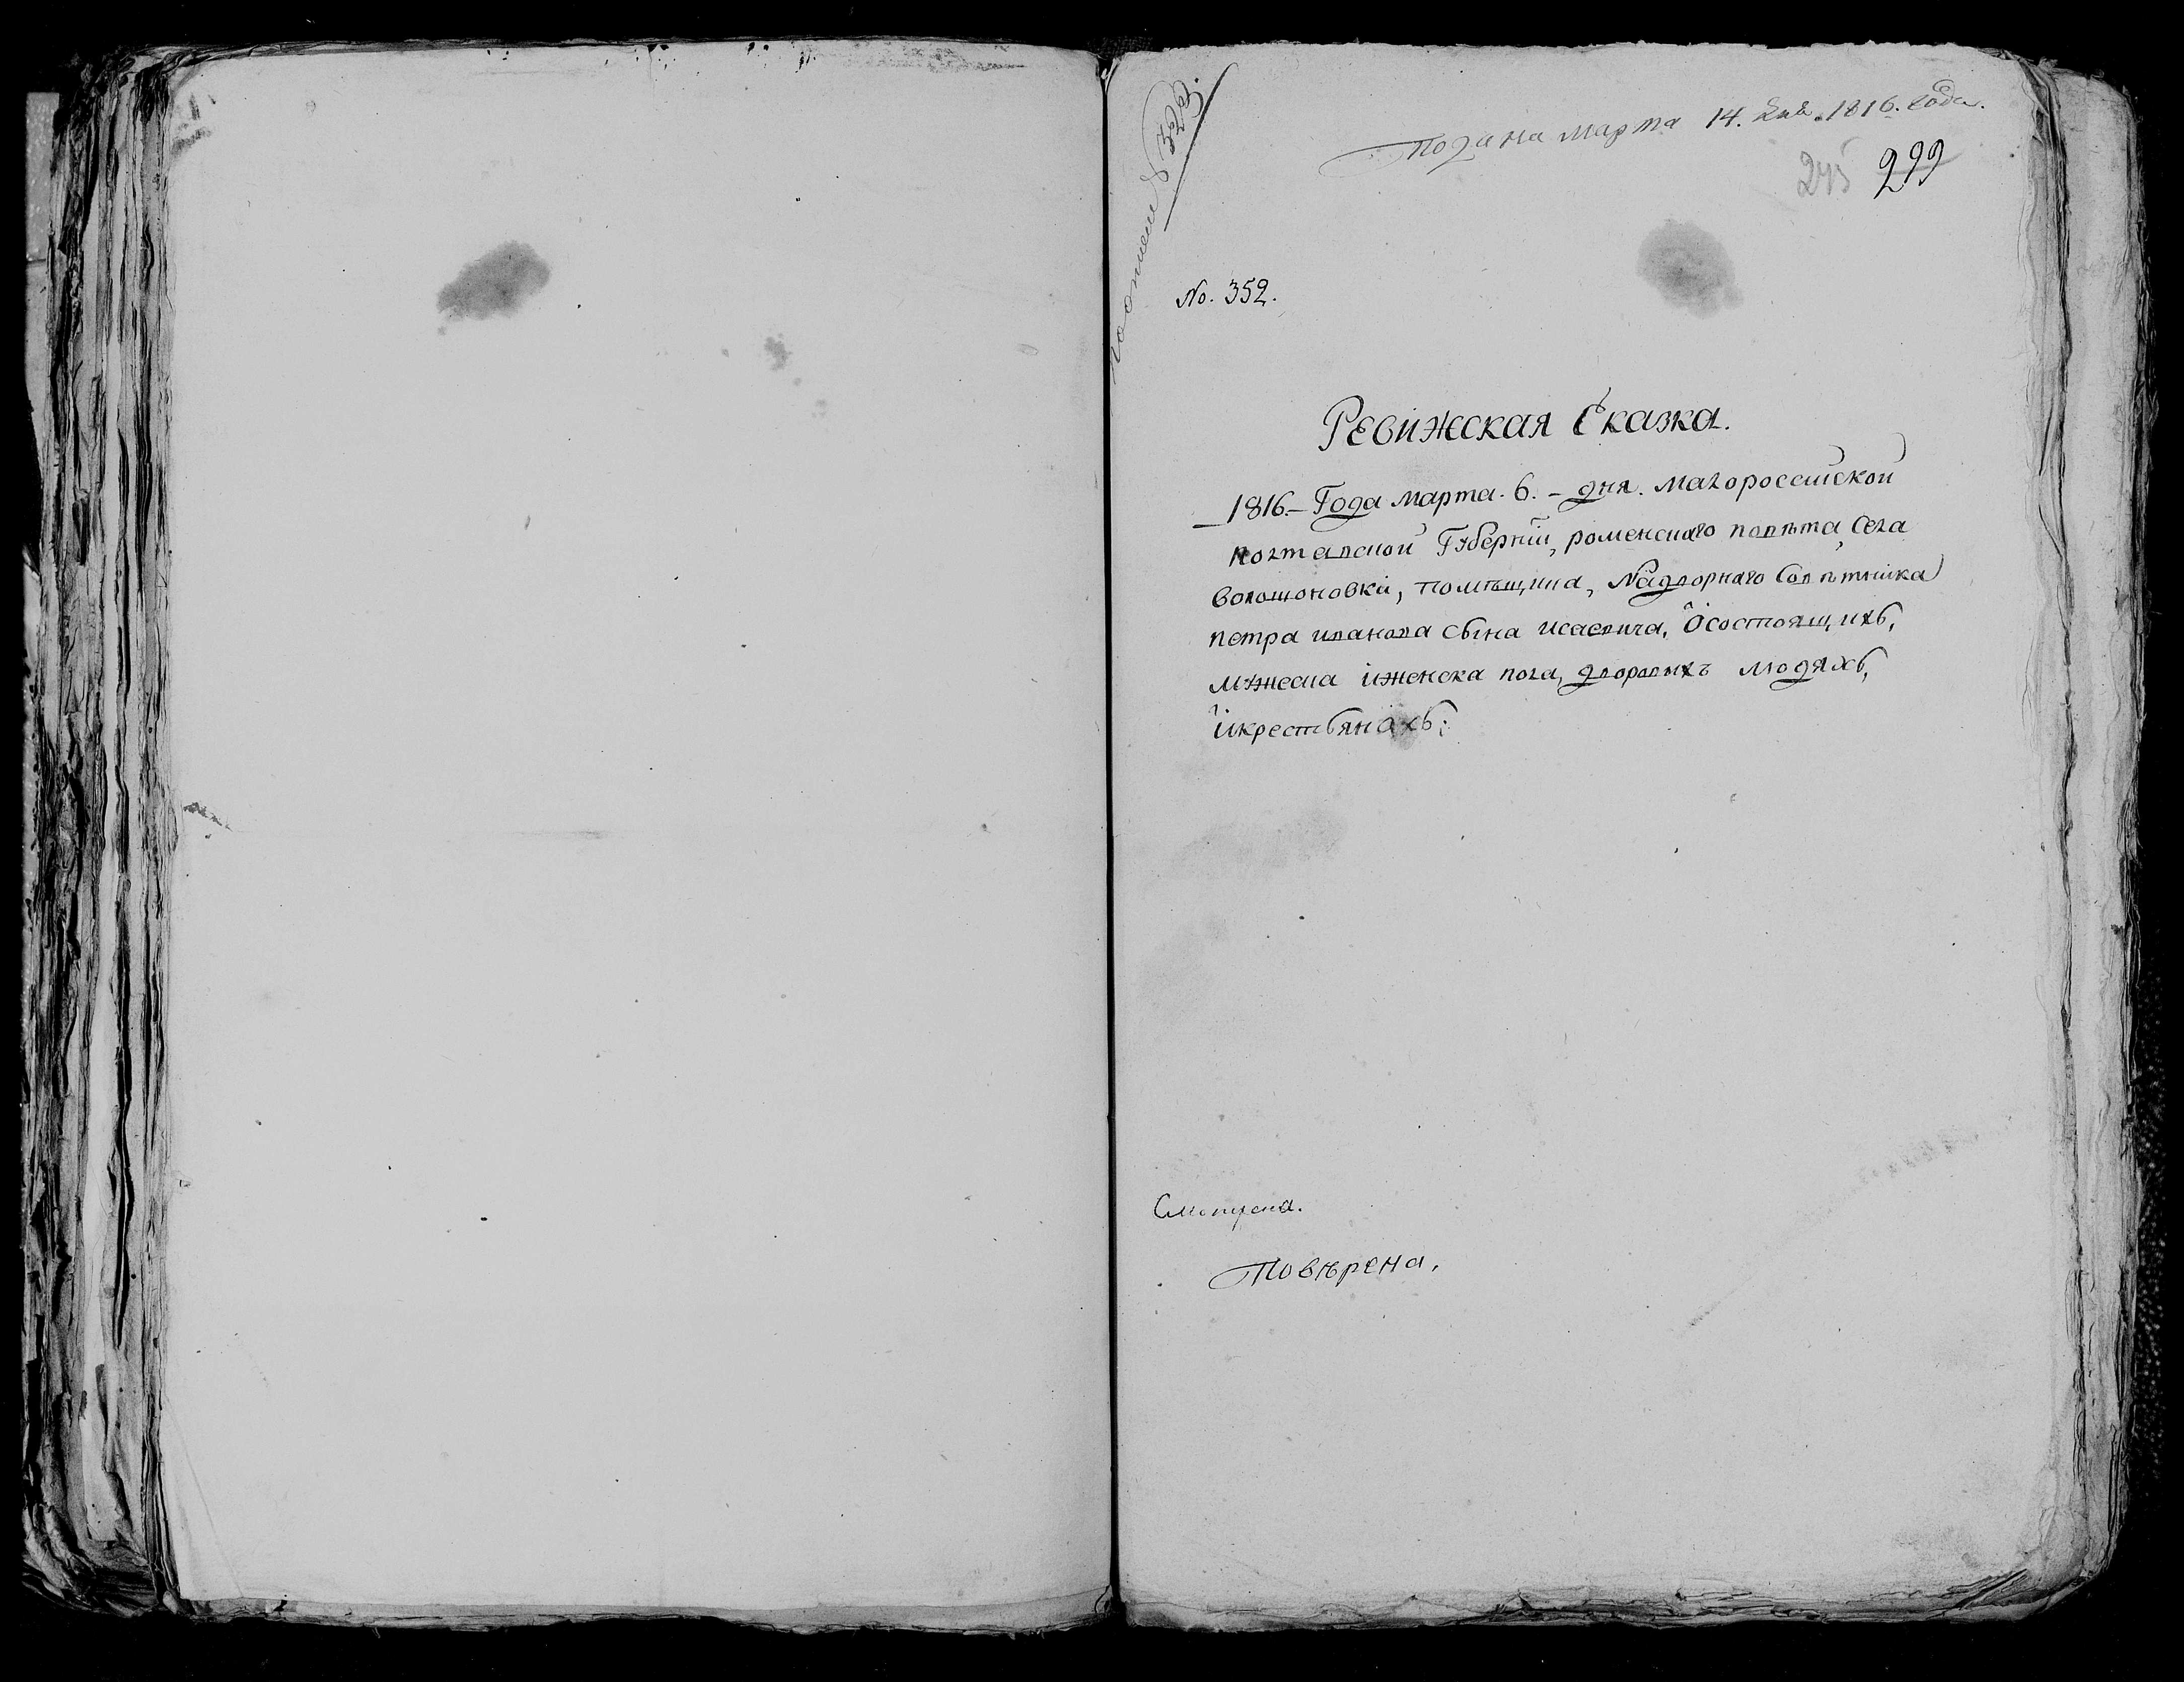 Подана марта 14. дня. 1816. года.
245 299
323.
No. 352.
Ревижская Сказка.
1816.- Года марта. 6. - дня. Малороссийской
полтавской Губернїи, роменскаго повѣта, села
волошоновки, помѣщика, Надворнаго Совѣтника
петра иванова сына исаевича, О состоящихъ,
мужеска и женска пола, дворовыхъ людяхъ,
и крестьянахъ:
Повѣрена,